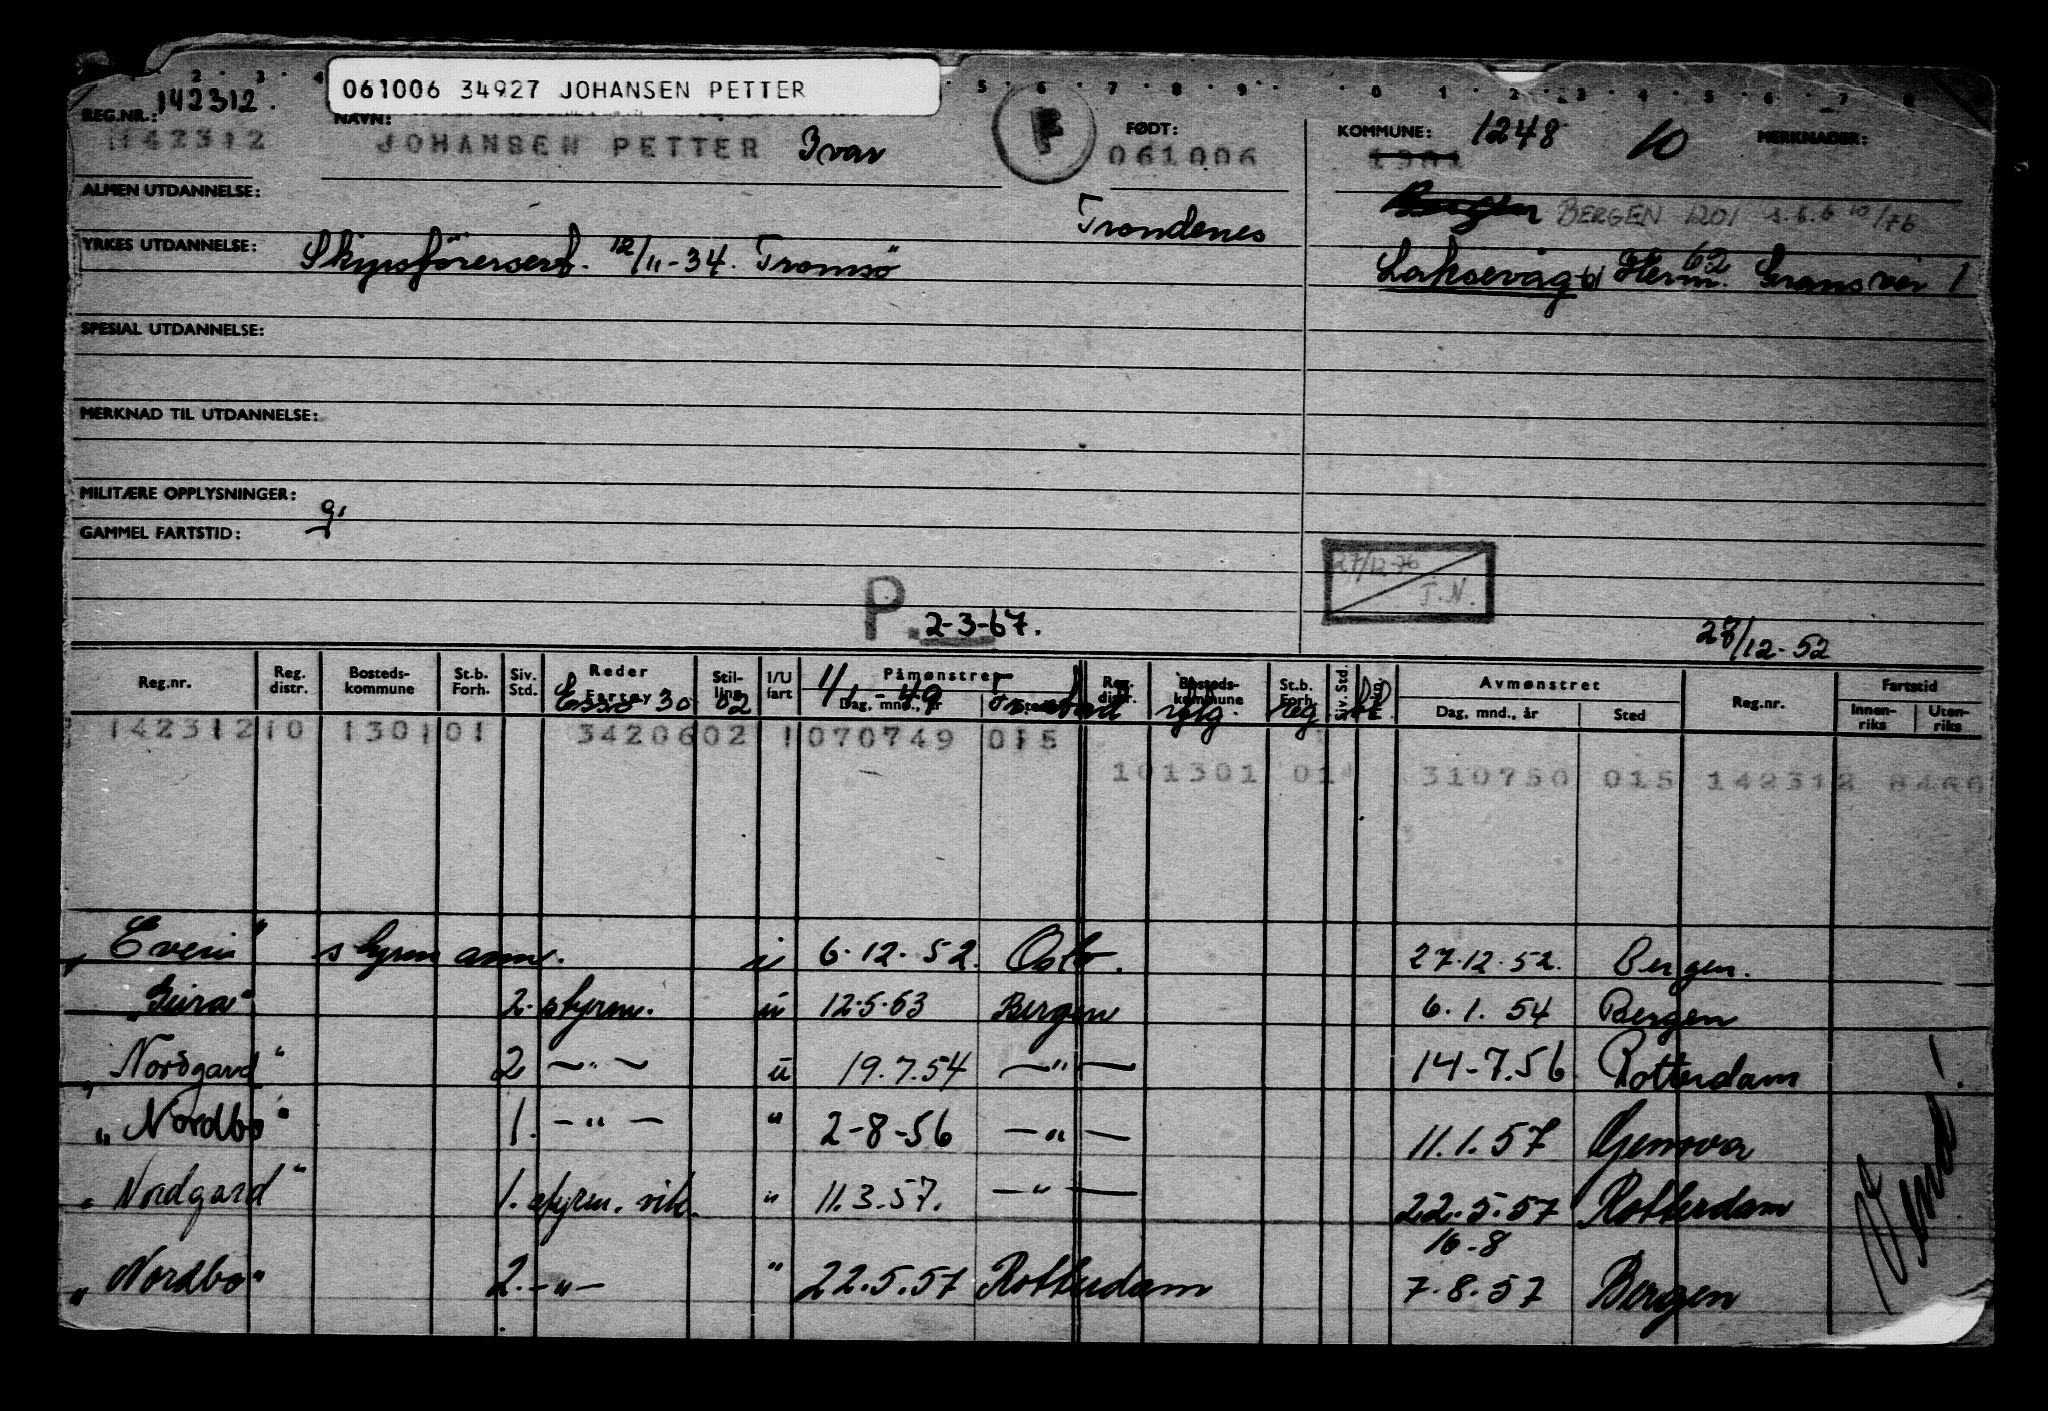 061006 34927 JOHANSEN PETTER
REG.NR.: 142312.
142312
NAVN:
JOHANSEN PETTER Ivar
F
FØDT:
061006
KOMMUNE: 1248 10 MERKNADER:
ALMEN UTDANNELSE:
Trondenes
Bergen BERGEN 1201 10/76
YRKES UTDANNELSE: Skipsförersert. 12/11-34. Tromsö
Laksevåg Herm. Grans vei 62 1
SPESIAL UTDANNELSE:
MERKNAD TIL UTDANNELSE:
MILITÆRE OPPLYSNINGER:
GAMMEL FARTSTID:
27/12-76
T.N.
P. 2-3-67.
28/12-52
Reg.nr. Reg. distr. Bosteds-kommune St.b. Forh. Siv. Std. Reder Fartøy Stil-ling I/U fart Påmønstret Dag, mnd., år Sted Reg. distr. Bosteds-kommune St.b. Forh. Siv. Std. Avmønstret Dag, mnd., år Sted Reg.nr. Fartstid Innen-riks Uten-riks
Esso 30 02 1/1-49
142312 10 1301 01 34206 02 1 070749 015
10 1301 01 310750 015 142312
"Everi" styrm ass. u 6.12.52. Oslo. 27.12.52. Bergen.
"Geira" 2. styrm. u 12.5.53 Bergen 6.1.54 Bergen
"Nordgard" 2 —"— u 19.7.54 —"— 14-7.56 Rotterdam
"Nordbo" 1. —"— " 2-8-56 —"— 11.1.57 Genova
"Nordgard" 1. styrm. vik. " 11.3.57. —"— 22.5.57 Rotterdam
16-8
"Nordbo" 2. —"— " 22.5.57 Rotterdam 7.8.57 Bergen
Vend!